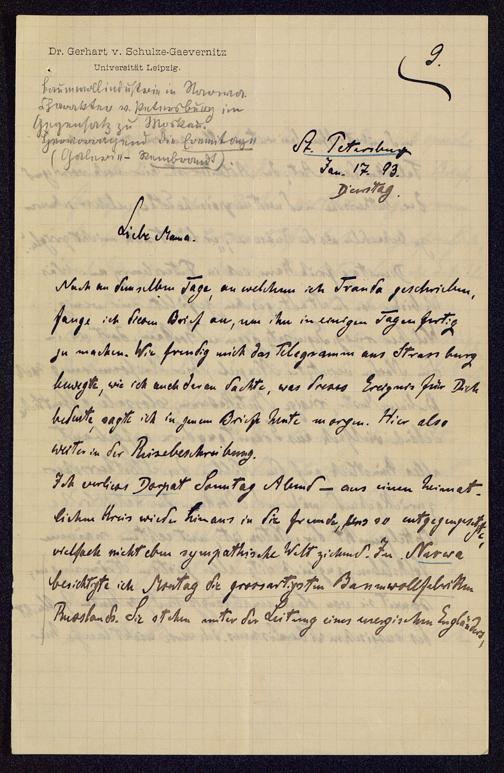 Dr. Gerhart v. Schulze-Gaevernitz
Universität Leipzig.
9.
Baumwollindustrie in Narowa.
Charakter v. Petersburg im
Gegensatz zu Moskau.
Hervorragend die Eremitage
(Galerie - Rembrandt)
St. Petersburg
Jan. 17. 93.
Dienstag.
Liebe Mama.
Noch an demselben Tage, an welchem ich Tranda geschrieben,
fange ich diesen Brief an, um ihn in einigen Tagen fertig
zu machen. Wie freudig mich das Telegramm aus Strassburg
bewegte, wie ich auch daran dachte, was dieses Ereignis für Dich
bedeute, sagte ich in jenem Briefe heute morgen. Hier also
weiter in der Reisebeschreibung.
Ich verliess Dorpat Sonntag Abend – aus einem heimat-
lichen Kreis wieder hinaus in die fremde, uns so entgegengesetzte,
vielfach nicht eben sympathische Welt ziehend. In Narwa
besichtigte ich Montag die grossartigsten Baumwollfabriken
Russlands. Sie stehen unter der Leitung eines energischen Engländers,